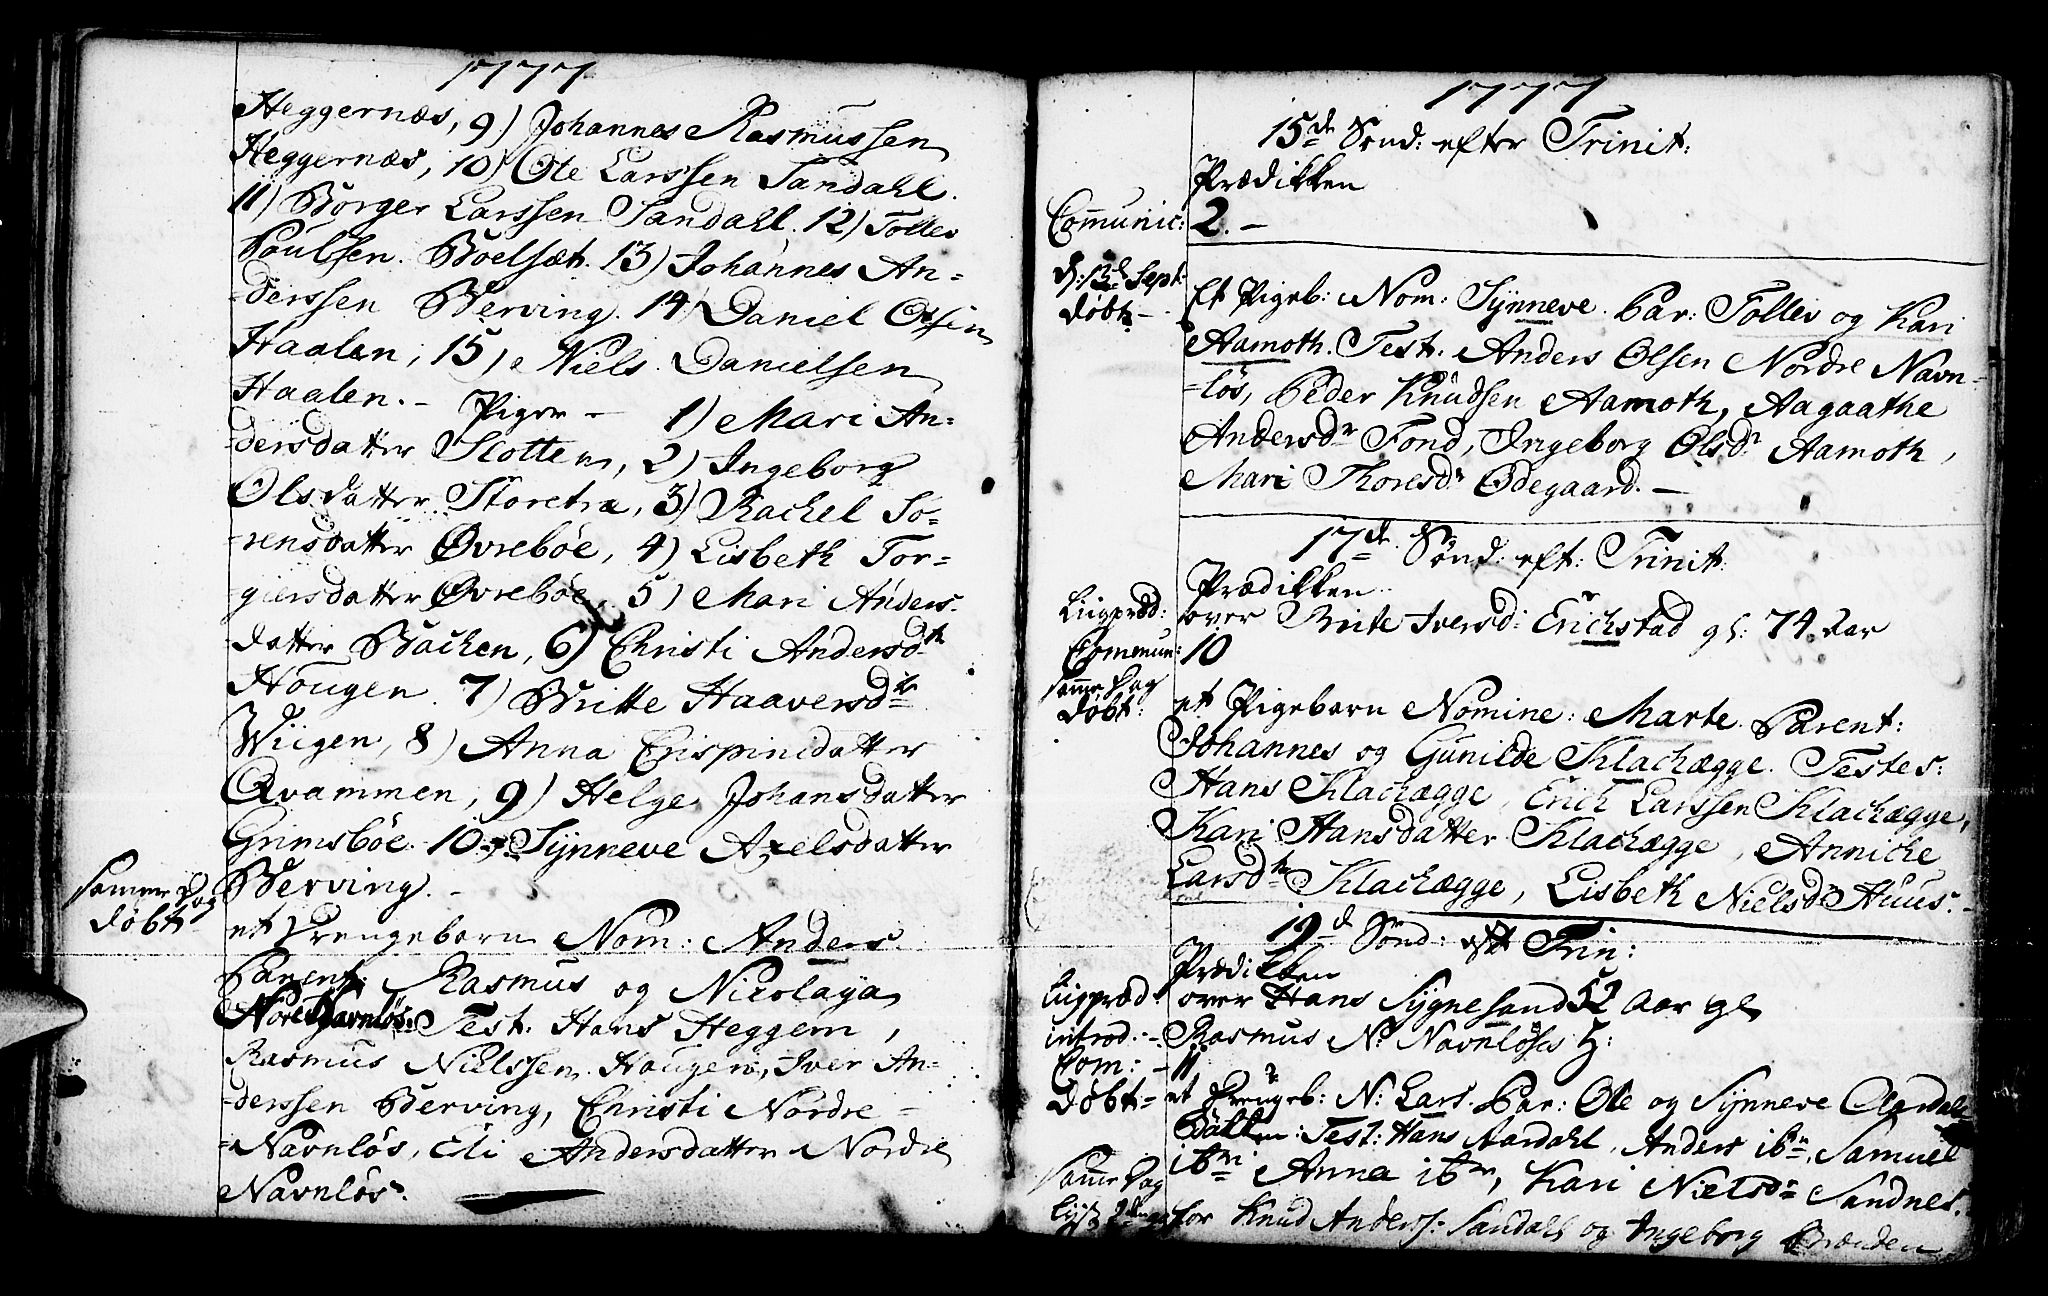 1777
Heggernæs, 9) Johannes Rasmussen
Heggernæs, 10) Ole Larssen Sandahl.
11) Børger Larssen Sandahl. 12) Tollev
Poulsen Boelsæt. 13) Johannes An-
-derssen Berving. 14) Daniel
Haalen, 15) Niels Danielsen
Haalen. - Piger - 1) Mari An-
-dersdatter Slotten, 2) Ingeborg
Olsdatter Storetræ, 3) Rachel Sø-
-rensdatter Øvrebøe, 4) Lisbeth Tor-
giersdatter Øvrebøe, 5) Mari Anders-
-datter Backen, 6) Christi Andersdtr
Hougen. 7) Britte Haaversdtr
Wiigen, 8) Anna Crispinidatter
Qvammen, 9) Helge Johansdatter
Grimsbøe. 10) Synneve Axelsdatter
Berving. -
samme Dag
døbt
et Drengebarn Nom: Anders.
Parent: Rasmus og Nicolaya
Nordre Navnløs: Test: Hans Heggem,
Rasmus Nielssen Hougen, Iver An-
-derssen Berving, Christi Nordre-
-Navnløs, Eli Andersdatter Nordre
Navnløs.
1777
15de Sønd: efter Trinit:
Prædikken
Comunic: 2. -
d: 13d Sept.
døbt -
Et Pigeb: Nom: Synneve. Par: Tollev og Kari
Aamoth. Test: Anders Olsen Nordre Navn-
-løs, Peder Knudsen Aamoth, Aagaathe
Andersdr Fond, Ingeborg Olsdr Aamoth,
Mari Thoresdr Ødegaard. -
17de Sønd: eft: Trinit:
Prædikken
Liigpræd: over Brite Iversd: Erichstad gl: 74 Aar
Commun: 10
samme Dag
døbt:
et Pigebarn Nomine: Marte. Parent:
Johannes og Gunilde Klachægge. Testes:
Hans Klachægge, Erich Larssen Klachægge,
Kari Hansdatter Klachægge, Anniche
Larsdtr Klachægge, Lisbeth Nielsdr Huus. -
19d Sønd: eft Trin:
Prædikken
Liigpræd: over Hans Sygnesand 52 Aar gl
introd: - Rasmus N: Navnløses H:
Com: - 11
Døbt - et Drengeb: N: Lars. Par: Ole og Synneve
Test: Hans Aardahl, Anders ibn, Samuel
Anna ibm, Kari Nielsdr Sandnes.
samme Dag
for Knud Anderss: Sandahl og Ingeborg Brænden